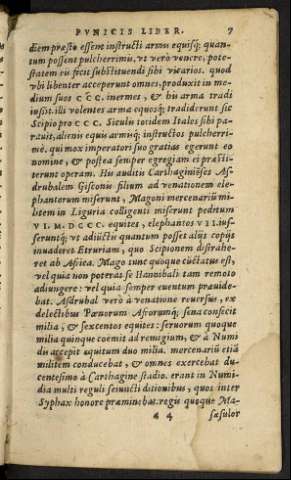 PVNICIS LIBER. 7
diem præsto essent instructi armis equisq; quan-
tum possent pulcherrimis. vt verò venere, pote-
statem eis fecit substituendi sibi vicarios. quod
vbi libenter acceperunt omnes, produxit in me-
dium suos CCC. inermes, & his arma tradi
iussit. illi volentes arma equosq; tradiderunt sic
Scipio pro CCC. Siculis totidem Italos sibi pa-
rauit, alienis equis armisq; instructos pulcherri-
mè, qui mox imperatori suo gratias egerunt eo
nomine, & postea semper egregiam ei præsti-
terunt operam. His auditis Carthaginiēses As-
drubalem Gisconis filium ad venationem ele-
phantorum miserunt, Magoni mercenariū mi-
litem in Liguria colligenti miserunt peditum
VI. M. DCCC. equites, elephantos VII. ius-
seruntq; vt adiūctis quantum posset alijs copijs
inuaderet Etruriam, quo Scipionem distrahe-
ret ab Africa. Mago tunc quoque cūctatus est,
vel quia non poterat se Hannibali tam remoto
adiungere: vel quia semper euentum præuide-
bat. Asdrubal verò à venatione reuersus, ex
delectibus Pœnorum Afrorumq; sena confecit
milia, & sexcentos equites: seruorum quoque
milia quinque coemit ad remigium, & à Numi
dis accepit equitum duo milia. mercenariū etiā
militem conducebat, & omnes exercebat du-
centesimo à Carthagine stadio. erant in Numi-
dia multi reguli seiuncti ditionibus, quos inter
Syphax honore præminebat. regis quoque Ma-
a 4 sæsulor